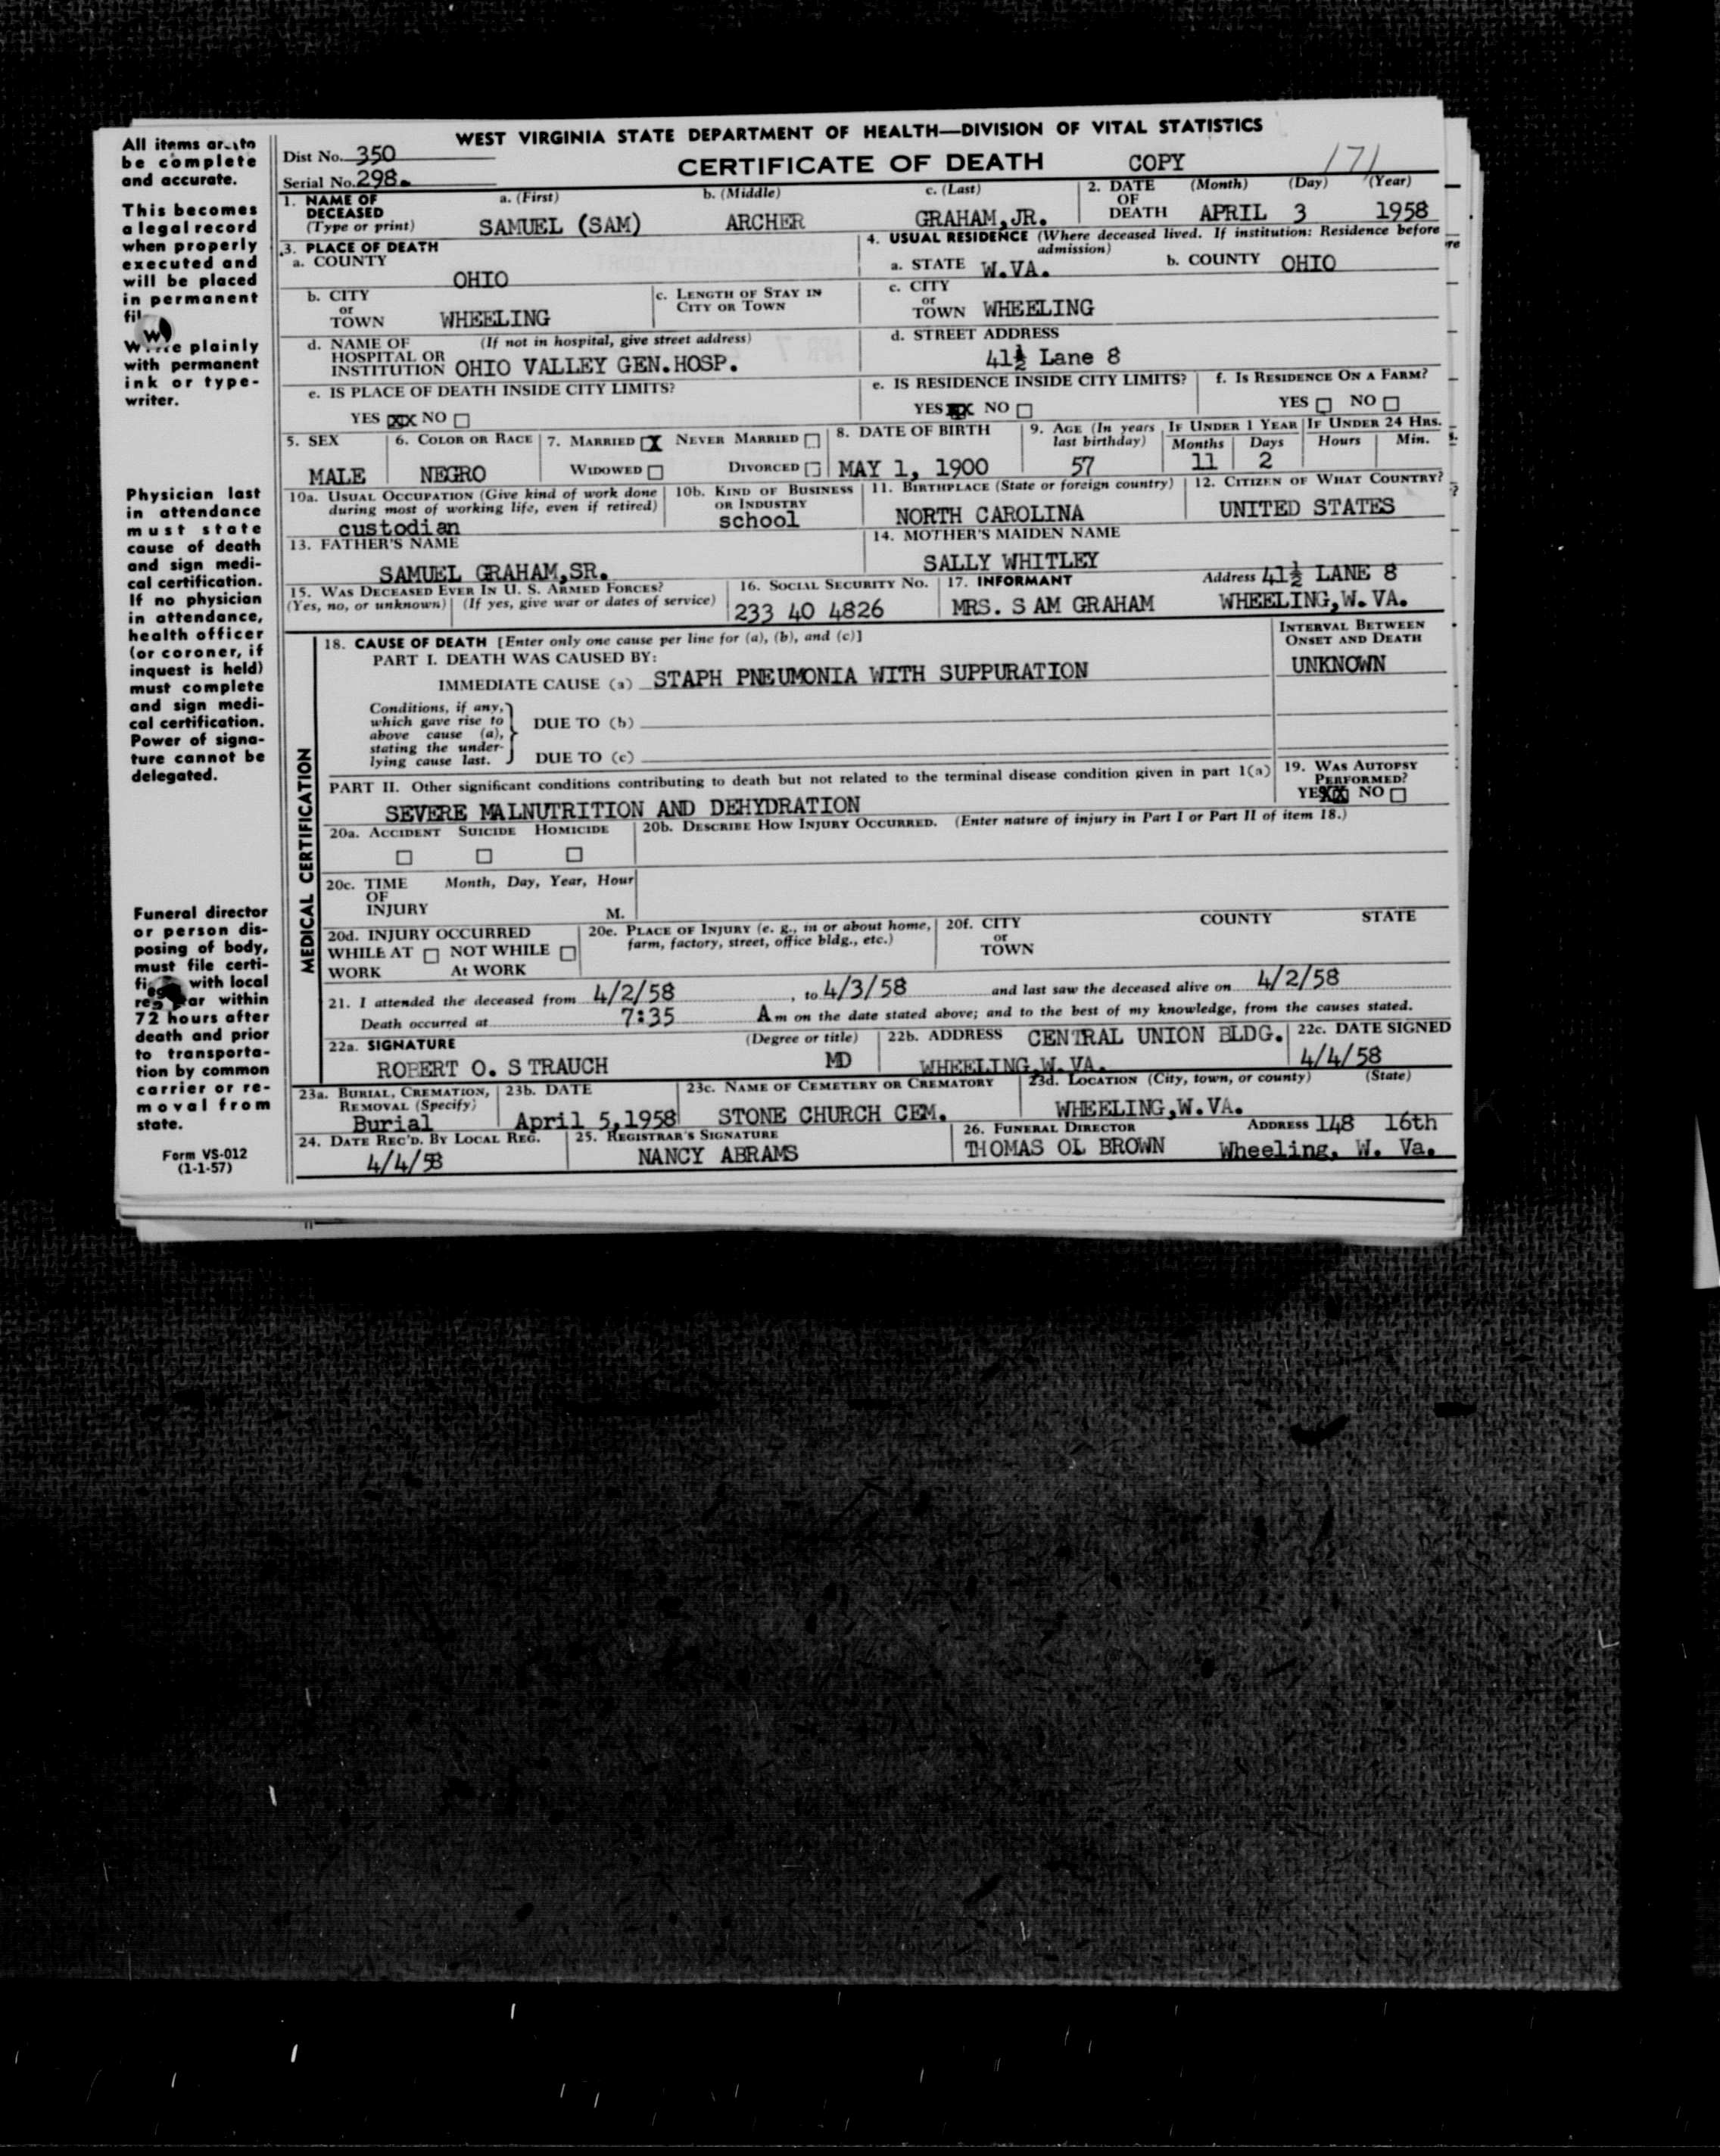 WEST VIRGINIA STATE DEPARTMENT OF HEALTH—DIVISION OF VITAL STATISTICS
Dist No. 350
CERTIFICATE OF DEATH COPY 171
Serial No. 298.
1. NAME OF DECEASED (Type or print) a. (First) b. (Middle) c. (Last)
SAMUEL (SAM) ARCHER GRAHAM, JR.
2. DATE OF DEATH (Month) (Day) (Year)
APRIL 3 1958
3. PLACE OF DEATH
a. COUNTY
OHIO
4. USUAL RESIDENCE (Where deceased lived. If institution: Residence before admission)
a. STATE W.VA. b. COUNTY OHIO
b. CITY or TOWN WHEELING
c. LENGTH OF STAY IN CITY OR TOWN
c. CITY or TOWN WHEELING
d. NAME OF HOSPITAL OR INSTITUTION (If not in hospital, give street address)
OHIO VALLEY GEN.HOSP.
d. STREET ADDRESS
41½ Lane 8
e. IS PLACE OF DEATH INSIDE CITY LIMITS?
YES XX NO
e. IS RESIDENCE INSIDE CITY LIMITS?
YES XX NO
f. IS RESIDENCE ON A FARM?
YES NO
5. SEX
MALE
6. COLOR OR RACE
NEGRO
7. MARRIED X NEVER MARRIED
WIDOWED DIVORCED
8. DATE OF BIRTH
MAY 1, 1900
9. AGE (In years last birthday)
57
IF UNDER 1 YEAR
Months Days
11 2
IF UNDER 24 HRS.
Hours Min.
10a. USUAL OCCUPATION (Give kind of work done during most of working life, even if retired)
custodian
10b. KIND OF BUSINESS OR INDUSTRY
school
11. BIRTHPLACE (State or foreign country)
NORTH CAROLINA
12. CITIZEN OF WHAT COUNTRY?
UNITED STATES
13. FATHER'S NAME
SAMUEL GRAHAM,SR.
14. MOTHER'S MAIDEN NAME
SALLY WHITLEY
15. WAS DECEASED EVER IN U. S. ARMED FORCES?
(Yes, no, or unknown) (If yes, give war or dates of service)
16. SOCIAL SECURITY NO.
233 40 4826
17. INFORMANT
MRS. S AM GRAHAM
Address 41½ LANE 8
WHEELING,W. VA.
MEDICAL CERTIFICATION
18. CAUSE OF DEATH [Enter only one cause per line for (a), (b), and (c)]
PART I. DEATH WAS CAUSED BY:
IMMEDIATE CAUSE (a) STAPH PNEUMONIA WITH SUPPURATION
INTERVAL BETWEEN ONSET AND DEATH
UNKNOWN
Conditions, if any, which gave rise to above cause (a), stating the underlying cause last.
DUE TO (b)
DUE TO (c)
PART II. Other significant conditions contributing to death but not related to the terminal disease condition given in part 1(a)
SEVERE MALNUTRITION AND DEHYDRATION
19. WAS AUTOPSY PERFORMED?
YES XX NO
20a. ACCIDENT SUICIDE HOMICIDE
20b. DESCRIBE HOW INJURY OCCURRED. (Enter nature of injury in Part I or Part II of item 18.)
20c. TIME OF INJURY Month, Day, Year, Hour
M.
20d. INJURY OCCURRED
WHILE AT WORK NOT WHILE At WORK
20e. PLACE OF INJURY (e. g., in or about home, farm, factory, street, office bldg., etc.)
20f. CITY or TOWN COUNTY STATE
21. I attended the deceased from 4/2/58, to 4/3/58 and last saw the deceased alive on 4/2/58
Death occurred at 7:35 Am on the date stated above; and to the best of my knowledge, from the causes stated.
22a. SIGNATURE (Degree or title)
ROBERT O. S TRAUCH MD
22b. ADDRESS CENTRAL UNION BLDG.
WHEELING,W. VA.
22c. DATE SIGNED
4/4/58
23a. BURIAL, CREMATION, REMOVAL (Specify)
Burial
23b. DATE
April 5,1958
23c. NAME OF CEMETERY OR CREMATORY
STONE CHURCH CEM.
23d. LOCATION (City, town, or county) (State)
WHEELING,W.VA.
24. DATE REC'D. BY LOCAL REG.
4/4/58
25. REGISTRAR'S SIGNATURE
NANCY ABRAMS
26. FUNERAL DIRECTOR
THOMAS OL BROWN
ADDRESS 148 16th
Wheeling, W. Va.
All items are to
be complete
and accurate.
This becomes
a legal record
when properly
executed and
will be placed
in permanent
Write plainly
with permanent
ink or type-
writer.
Physician last
in attendance
must state
cause of death
and sign medi-
cal certification.
If no physician
in attendance,
health officer
(or coroner, if
inquest is held)
must complete
and sign medi-
cal certification.
Power of signa-
ture cannot be
delegated.
Funeral director
or person dis-
posing of body,
must file certi-
with local
within
72 hours after
death and prior
to transporta-
tion by common
carrier or re-
moval from
state.
Form VS-012
(1-1-57)